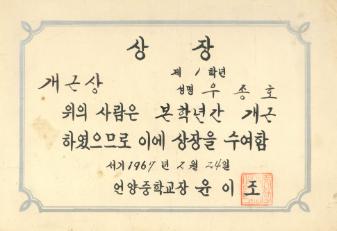 상 장
개근상
제 1 학년
성명 우 종 호
위의 사람은 본학년간 개근
하였으므로 이에 상장을 수여함
서기 1967 년 2 월 24 일
언양중학교장 윤 이 조